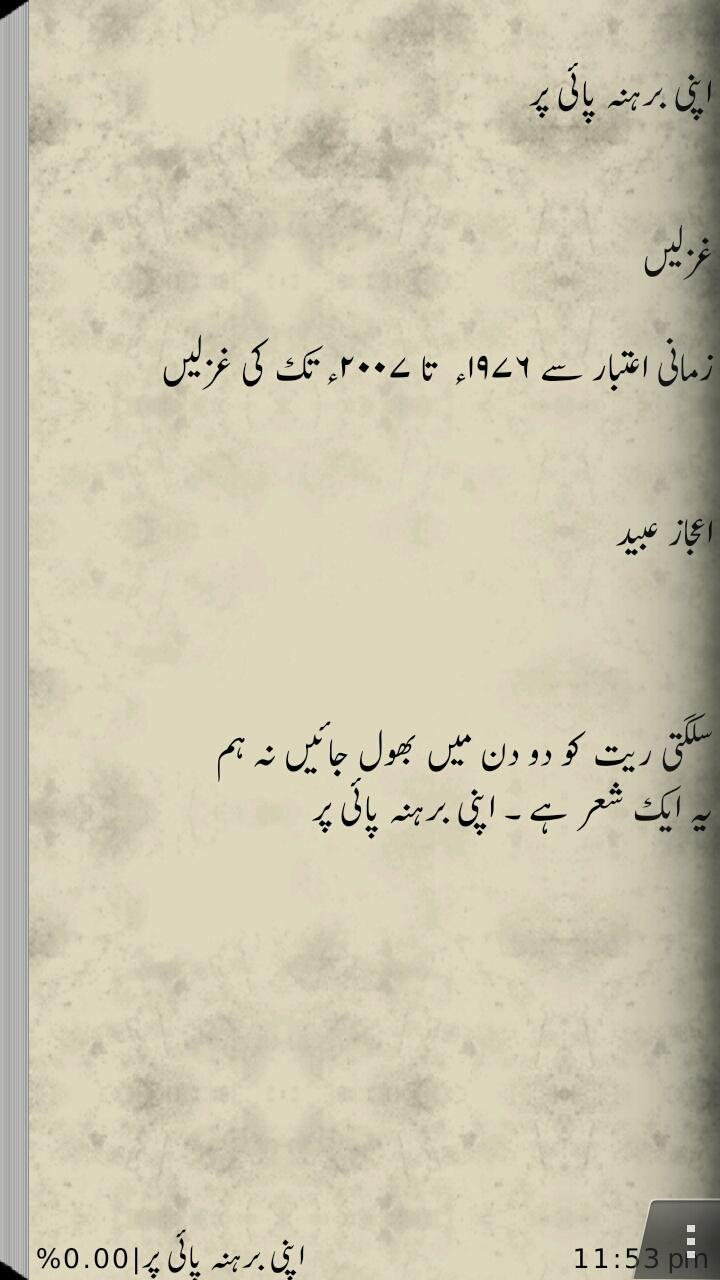 اپنی برہنہ پائی پر
غزلیں
زمانی اعتبار سے ۱۹۷۶ء تا ۲۰۰۷ء تک کی غزلیں
اعجاز عبید
سلگتی ریت کو دو دن میں بھول جائیں نہ ہم
یہ ایک شعر ہے ۔ اپنی برہنہ پائی پر
%0.00|اپنی برہنہ پائی پر
11:53 pm